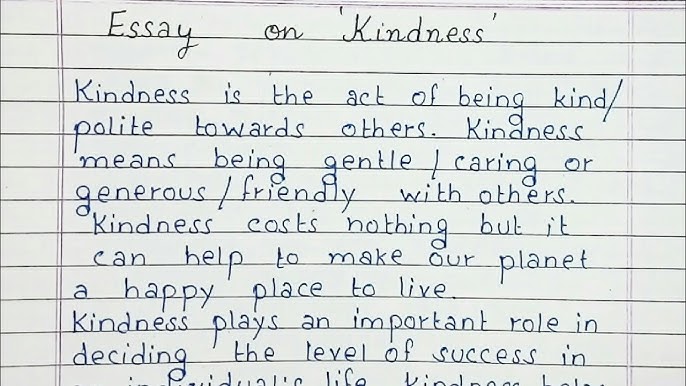 Essay on 'Kindness'
Kindness is the act of being kind/
polite towards others. Kindness
means being gentle / caring or
generous / friendly with others.
Kindness costs nothing but it
can help to make our planet
a happy place to live.
Kindness plays an important role in
deciding the level of success in
individual's life. Kindness